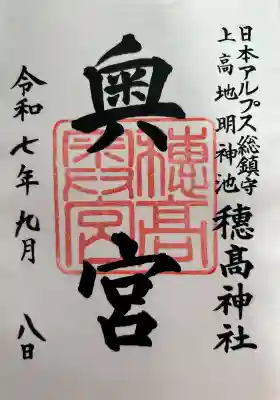 日本アルプス総鎮守
上高地明神池
穂髙神社
奥宮
令和七年九月
八日